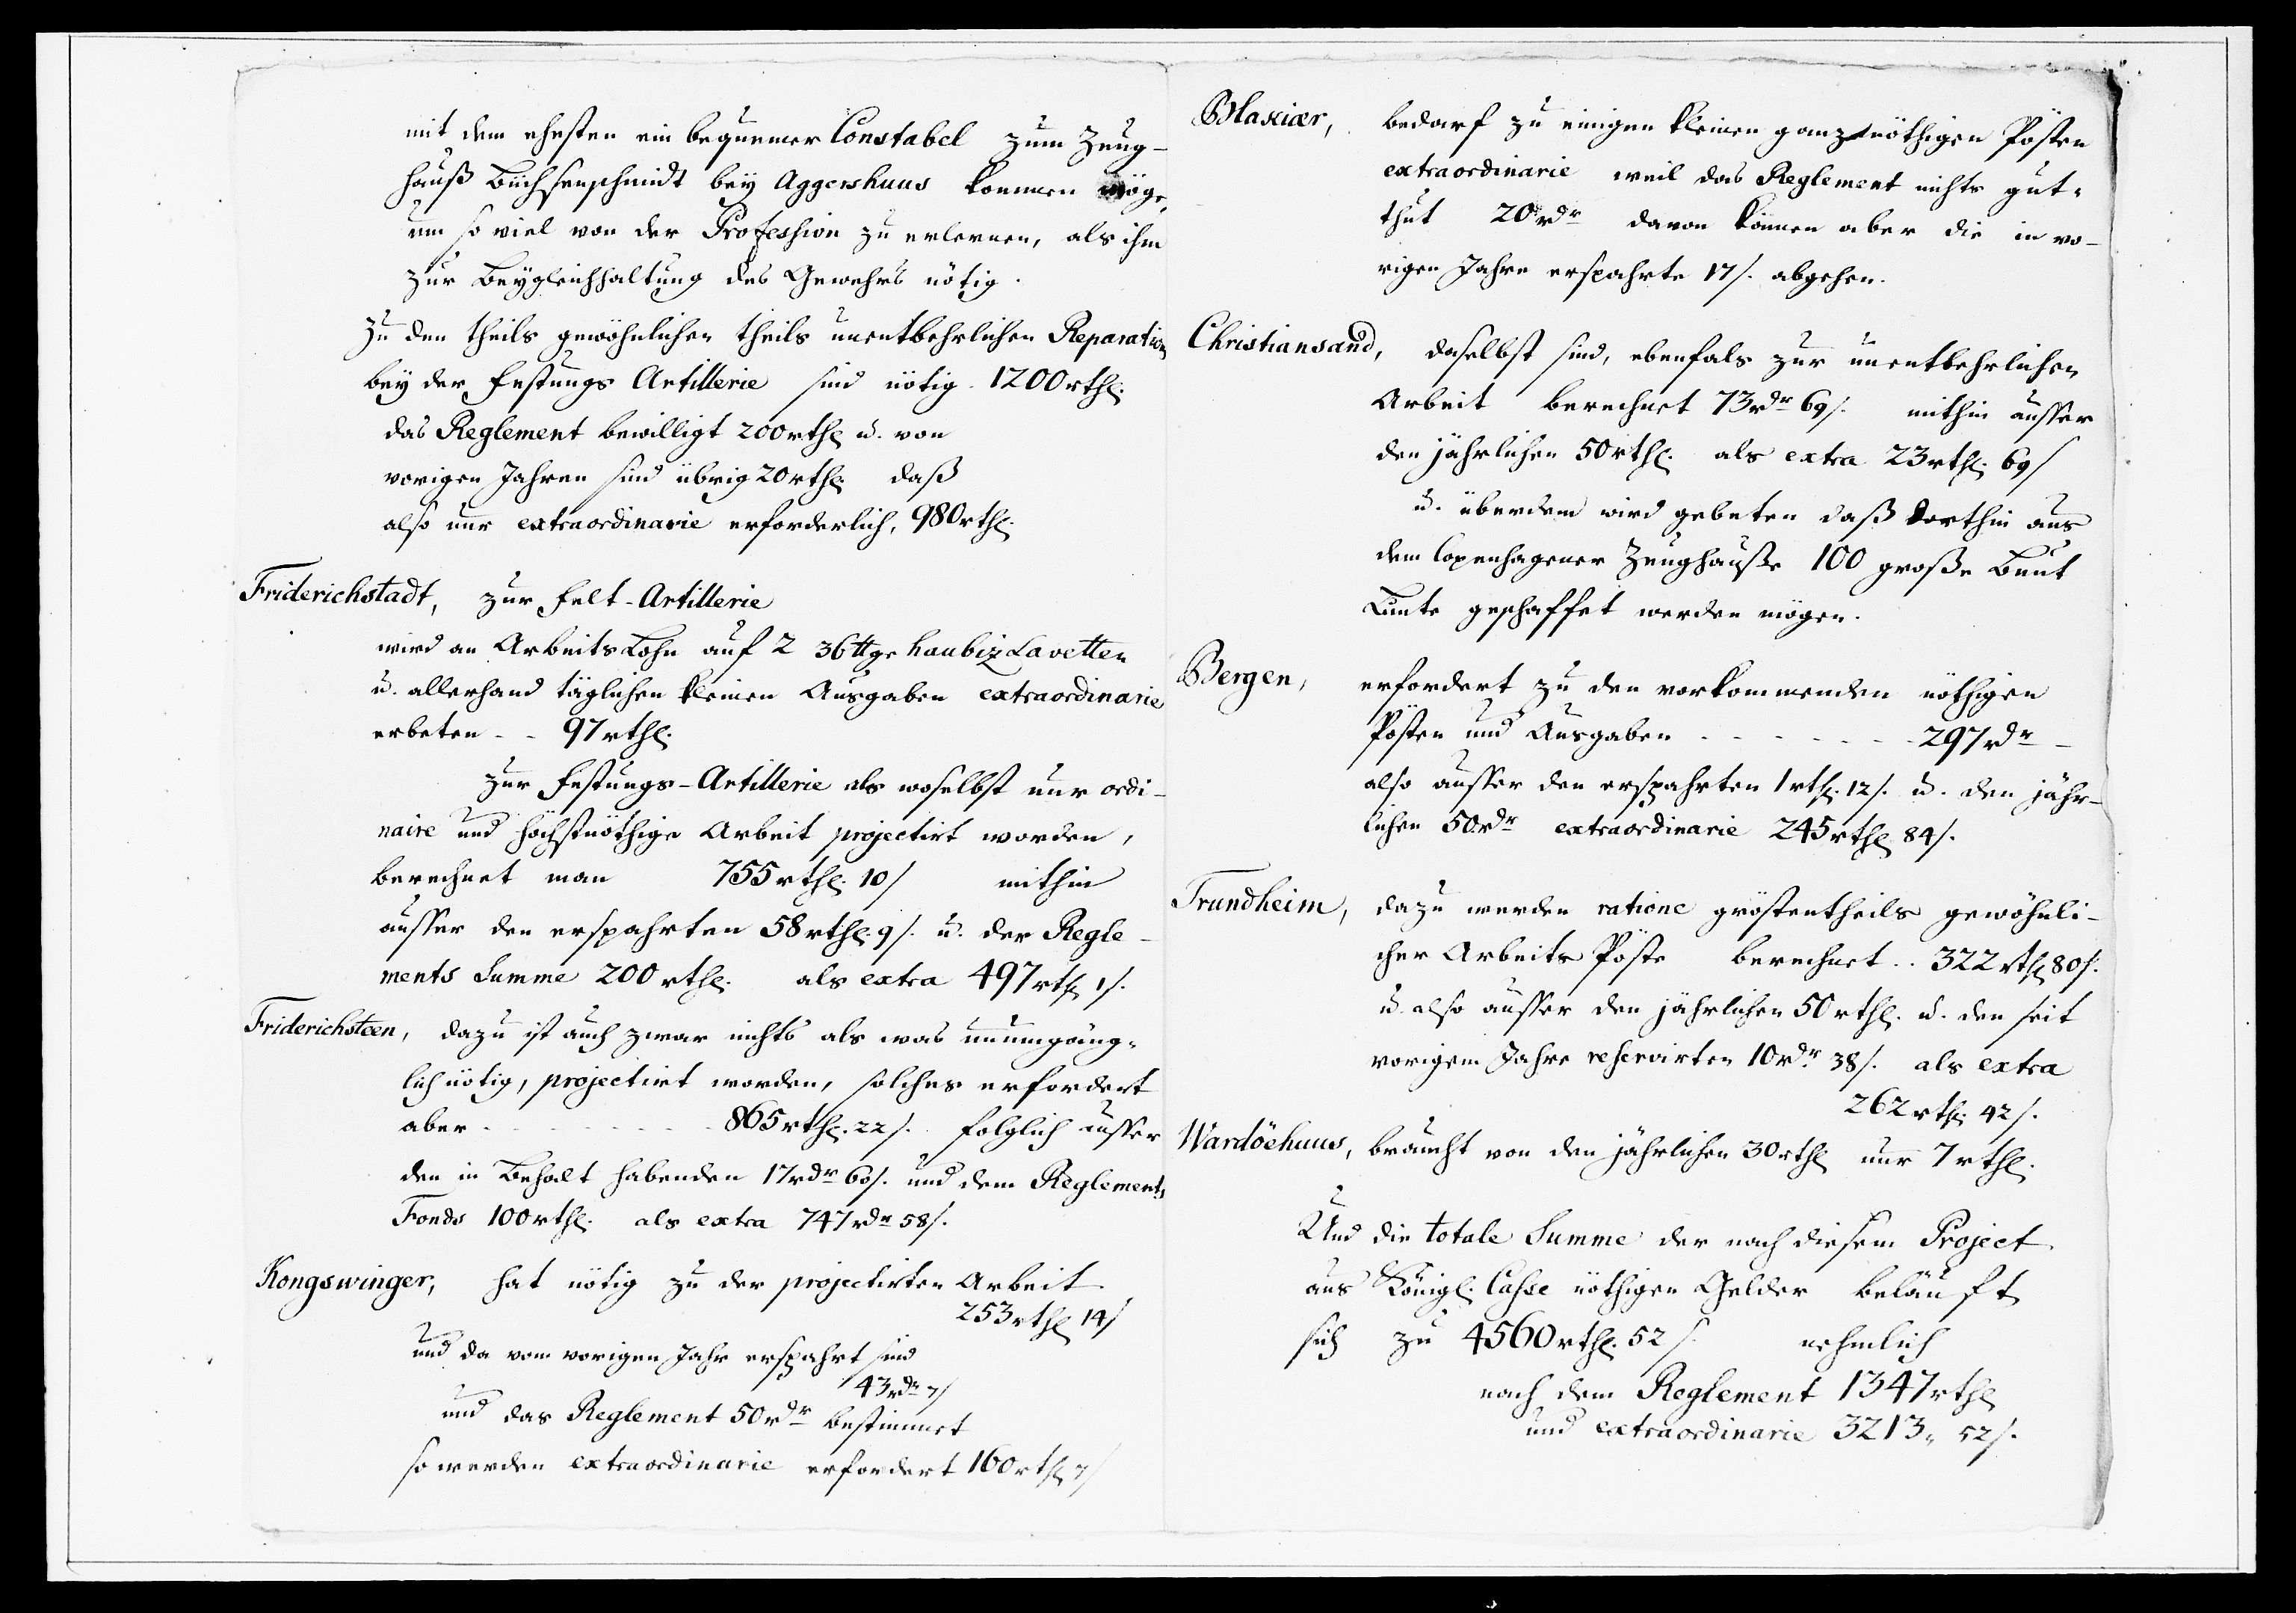 mit dem ehesten ein bequemer Constabel zum Zeug-
hauß Büchsenschmidt bey Aggershuus kommen möge,
um so viel von der Profession zu erlernen, als ihm
zur Beygleichhaltung des Gewehrs nötig.
Zu den theils gewöhnlichen theils unentbehrlichen Reparation
bey der Festungs Artillerie sind nötig 1200 rthl.
das Reglement bewilligt 200 rthl u. von
vorigen Jahren sind übrig 20 rthl. daß
also nur extraordinarie erforderlich, 980 rthl.
Friderichstadt, zur Felt-Artillerie
wird an Arbeits Lohn auf 2 36 ttge Haubiz Lavetten
u. allerhand täglichen kleinen Ausgaben extraordinarie
erbeten - - 97 rthl.
Zur Festungs-Artillerie als woselbst nur ordi-
naire und höchstnöthige Arbeit projectirt worden,
berechnet man 755 rthl. 10 / mithin
ausser den erspahrten 58 rthl. 9 /. u. der Regle-
ments Summe 200 rthl. als extra 497 rthl 1 /.
Friderichsteen, dazu ist auch zwar nichts als was unumgäng-
lich nötig, projectirt worden, solches erfordert
aber - - - - - - - 865 rthl. 22 /. folglich ausser
den in Behalt habenden 17 rdr 60 /. und dem Reglements
Fonds 100 rthl. als extra 747 rdr 58 /.
Kongswinger, hat nötig zu der projectirten Arbeit
253 rthl 14 /
und da vom vorigen Jahr erspahrt sind
43 rdr 7 /
und das Reglement 50 rdr bestimmet
so werden extraordinarie erfordert 160 rthl 7 /
Blaxiær, bedarf zu einigen kleinen ganz nöthigen Pösten
extraordinarie weil das Reglement nichts gut-
thut 20 rdr davon können aber die in vo-
rigen Jahre erspahrte 17 /. abgehen.
Christiansand, daselbst sind, ebenfals zur unentbehrlichen
Arbeit berechnet 73 rdr 69 /. mithin ausser
den jährlichen 50 rthl. als extra 23 rthl. 69 /
u. überdem wird gebeten daß dorthin aus
dem Copenhagener Zeughauße 100 große Bunt
Lunte geschaffet werden mögen.
Bergen, erfordert zu den vorkommenden nöthigen
Pösten und Ausgaben - - - - - - - 297 rdr -
also ausser den erspahrten 1 rthl. 12 /. u. den jähr-
lichen 50 rdr extraordinarie 245 rthl 84 /.
Trundheim, dazu werden ratione gröstentheils gewöhnli-
cher Arbeits Pöste berechnet . . 322 rthl 80 /.
u. also ausser den jährlichen 50 rthl. u. den seit
vorigem Jahre reservirten 10 rdr 38 /. als extra
262 rthl. 42 /.
Wardöehuus, braucht von den jährlichen 30 rthl nur 7 rthl.
Und die totale Summe der nach diesem Project
aus Königl. Casse nöthigen Gelder beläuft
sich zu 4560 rthl. 52 /. nehmlich
nach dem Reglement 1347 rthl
und extraordinarie 3213 „ 52 /.